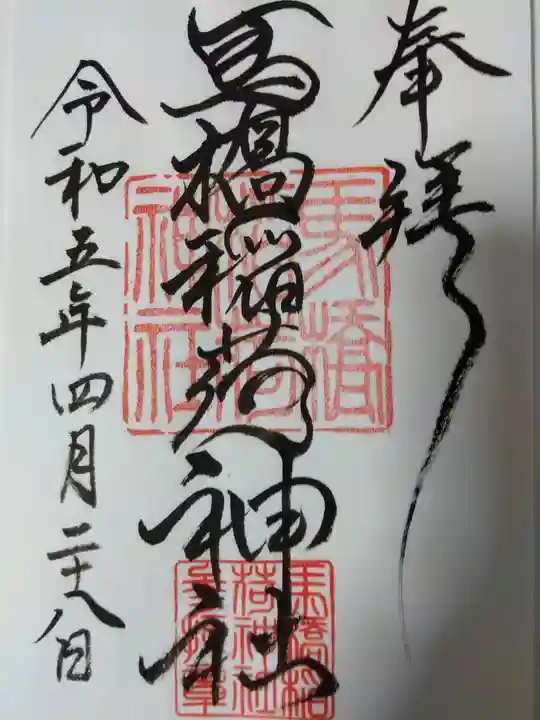 奉拝
馬橋稲荷神社
令和五年四月二十八日
馬橋
稲荷
神社
馬橋稲
荷神社
参拝章